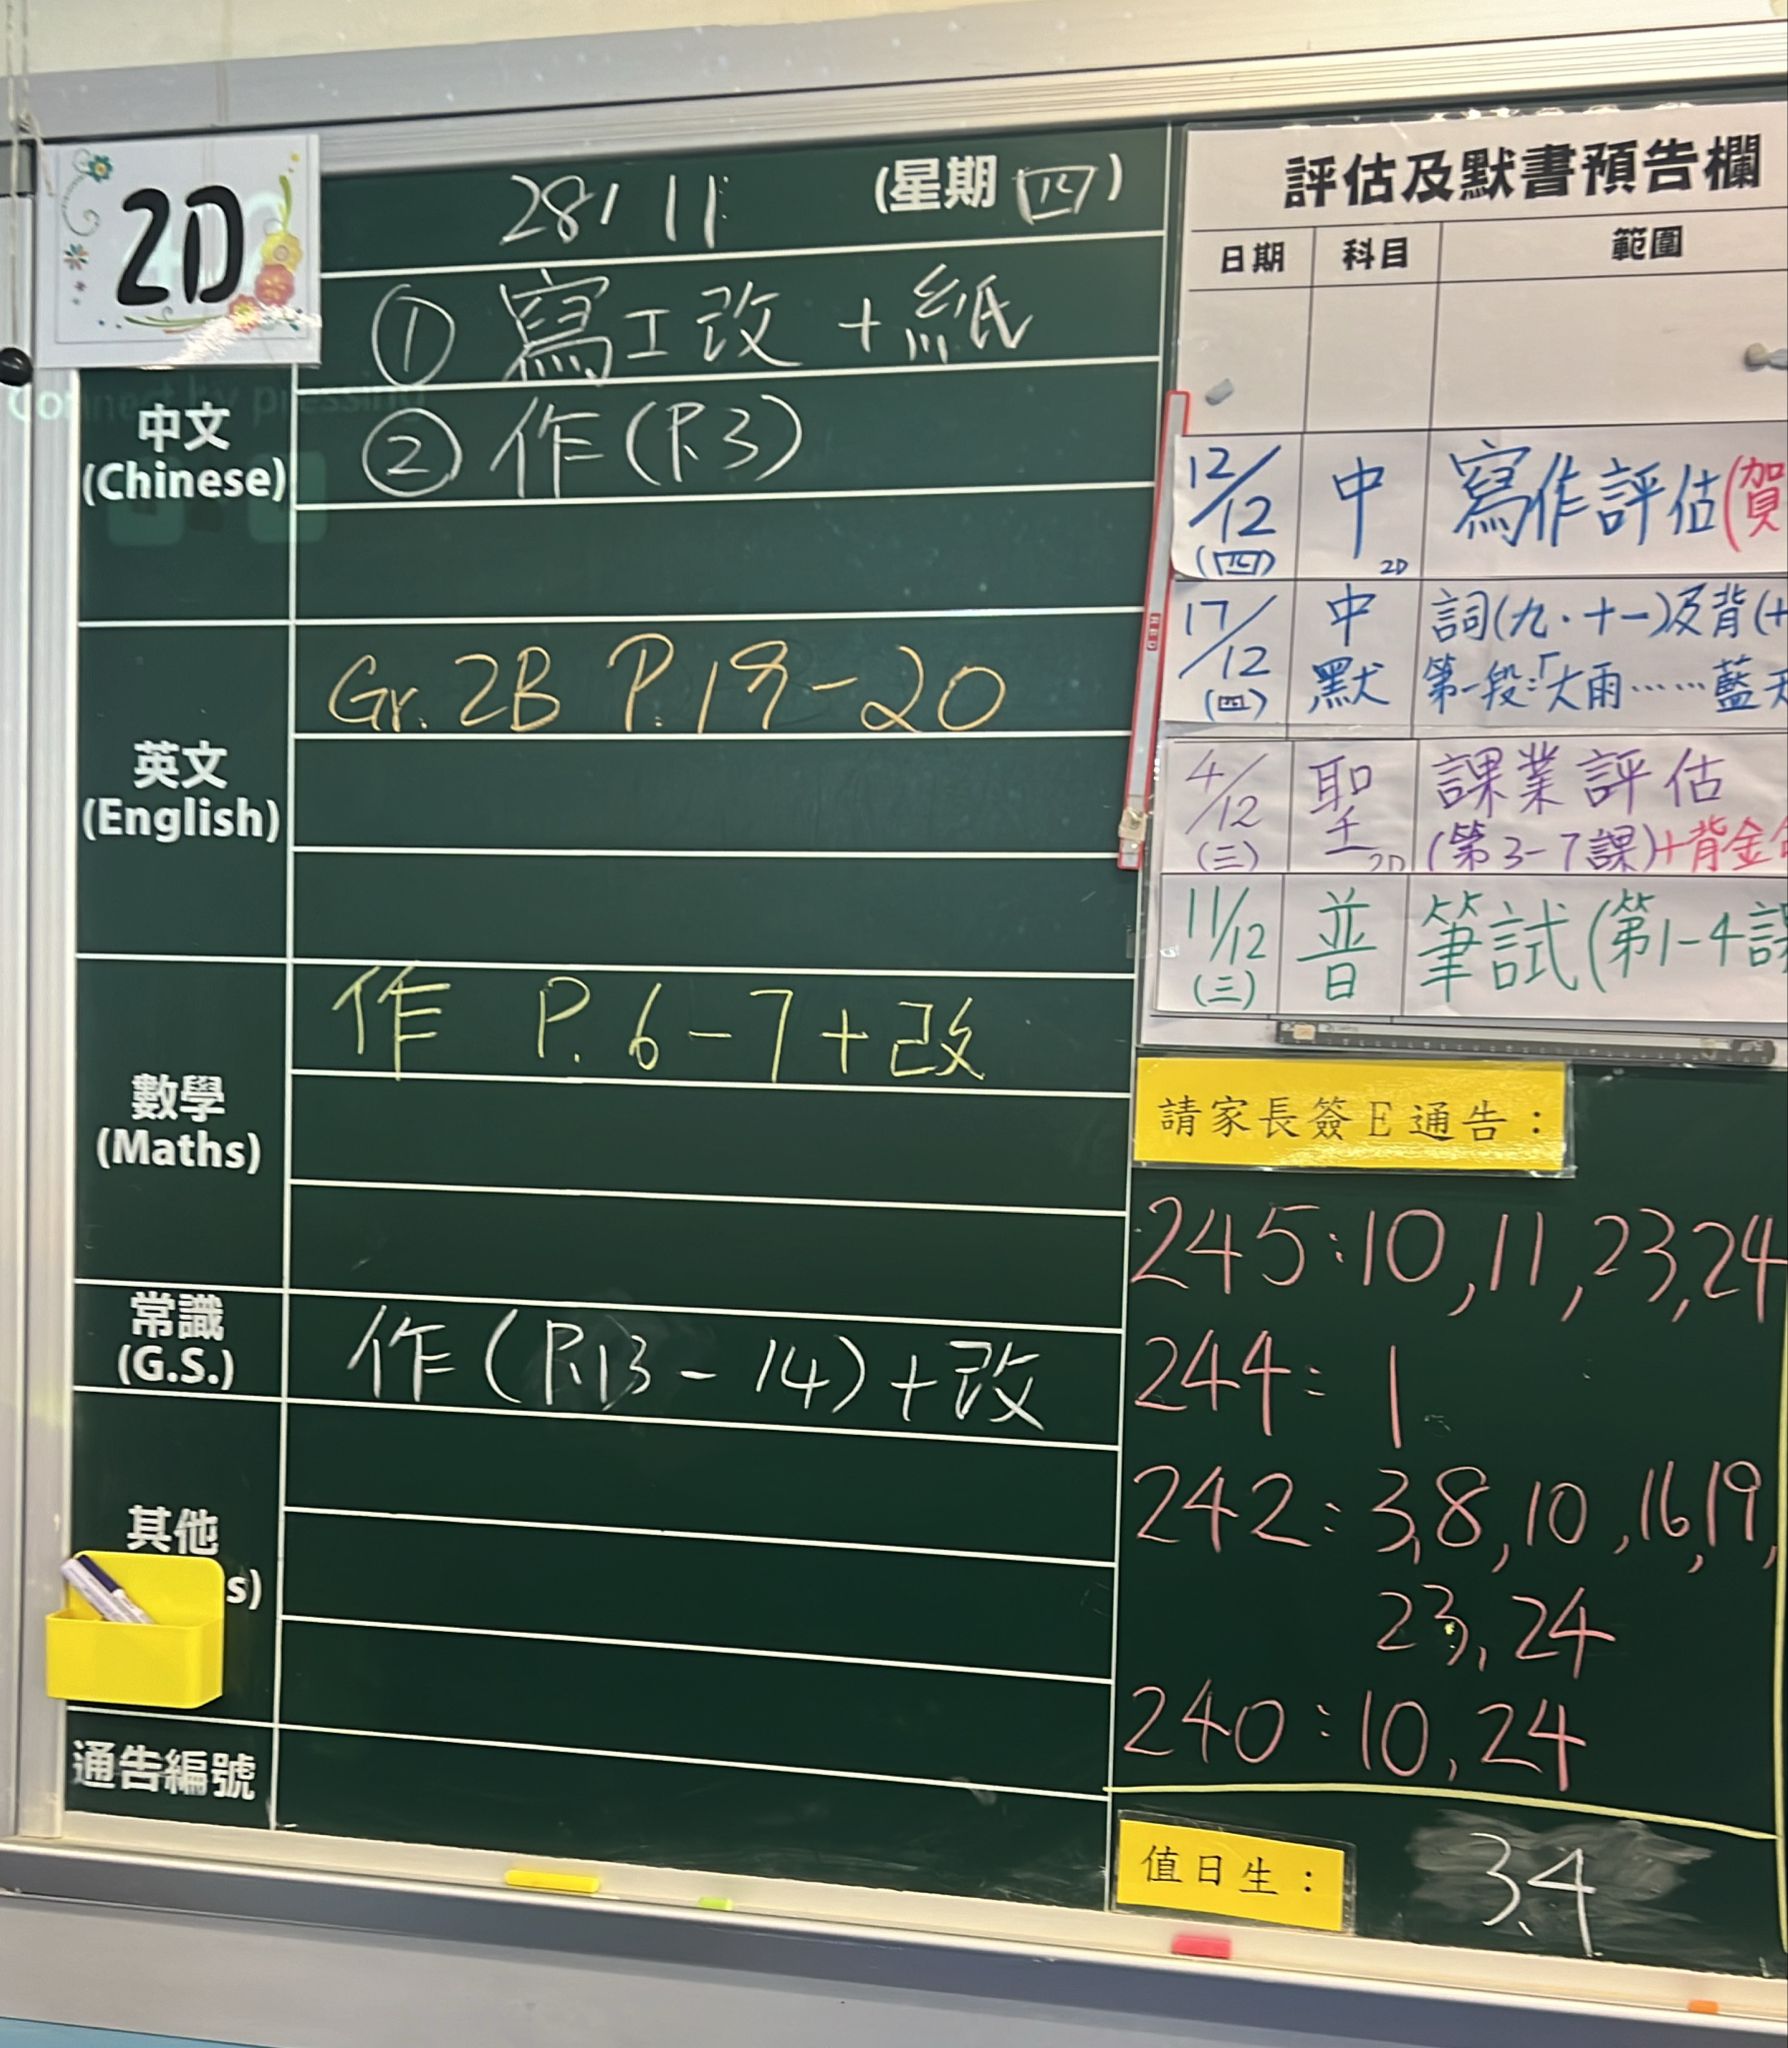 2D
28/11 (星期四)
中文
(Chinese)
① 寫工改+紙
② 作(P.3)
英文
(English)
Gr. 2B P.19-20
數學
(Maths)
作 P.6-7+改
常識
(G.S.)
作(P.13-14)+改
其他
s)
通告編號
評估及默書預告欄
日期 科目 範圍
12/12 (四) 中 2D 寫作評估(賀
17/12 (四) 中默 詞(九·十一)及背(十
第一段:「大雨……藍天
4/12 (三) 聖 2D 課業評估
(第3-7課)+背金句
11/12 (三) 普 筆試(第1-4課
請家長簽E通告:
245:10,11,23,24
244:1
242:3,8,10,16,19,
23,24
240:10,24
值日生: 3,4